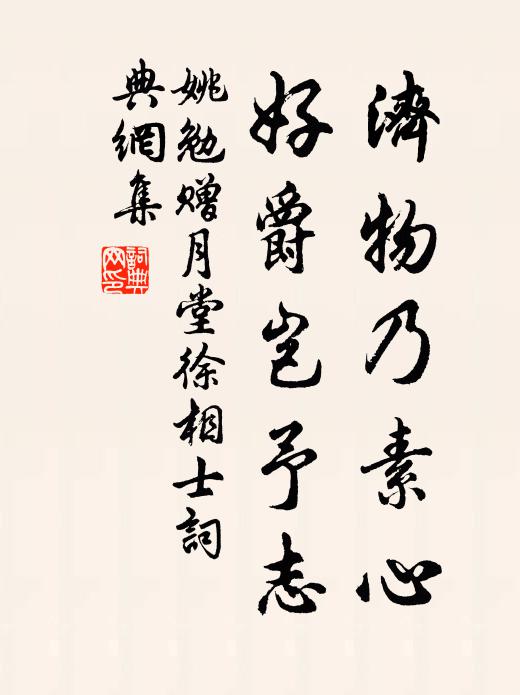 濟物乃素心
好爵豈予志
姚勉贈月堂徐相士詞
典網集
詞典網印